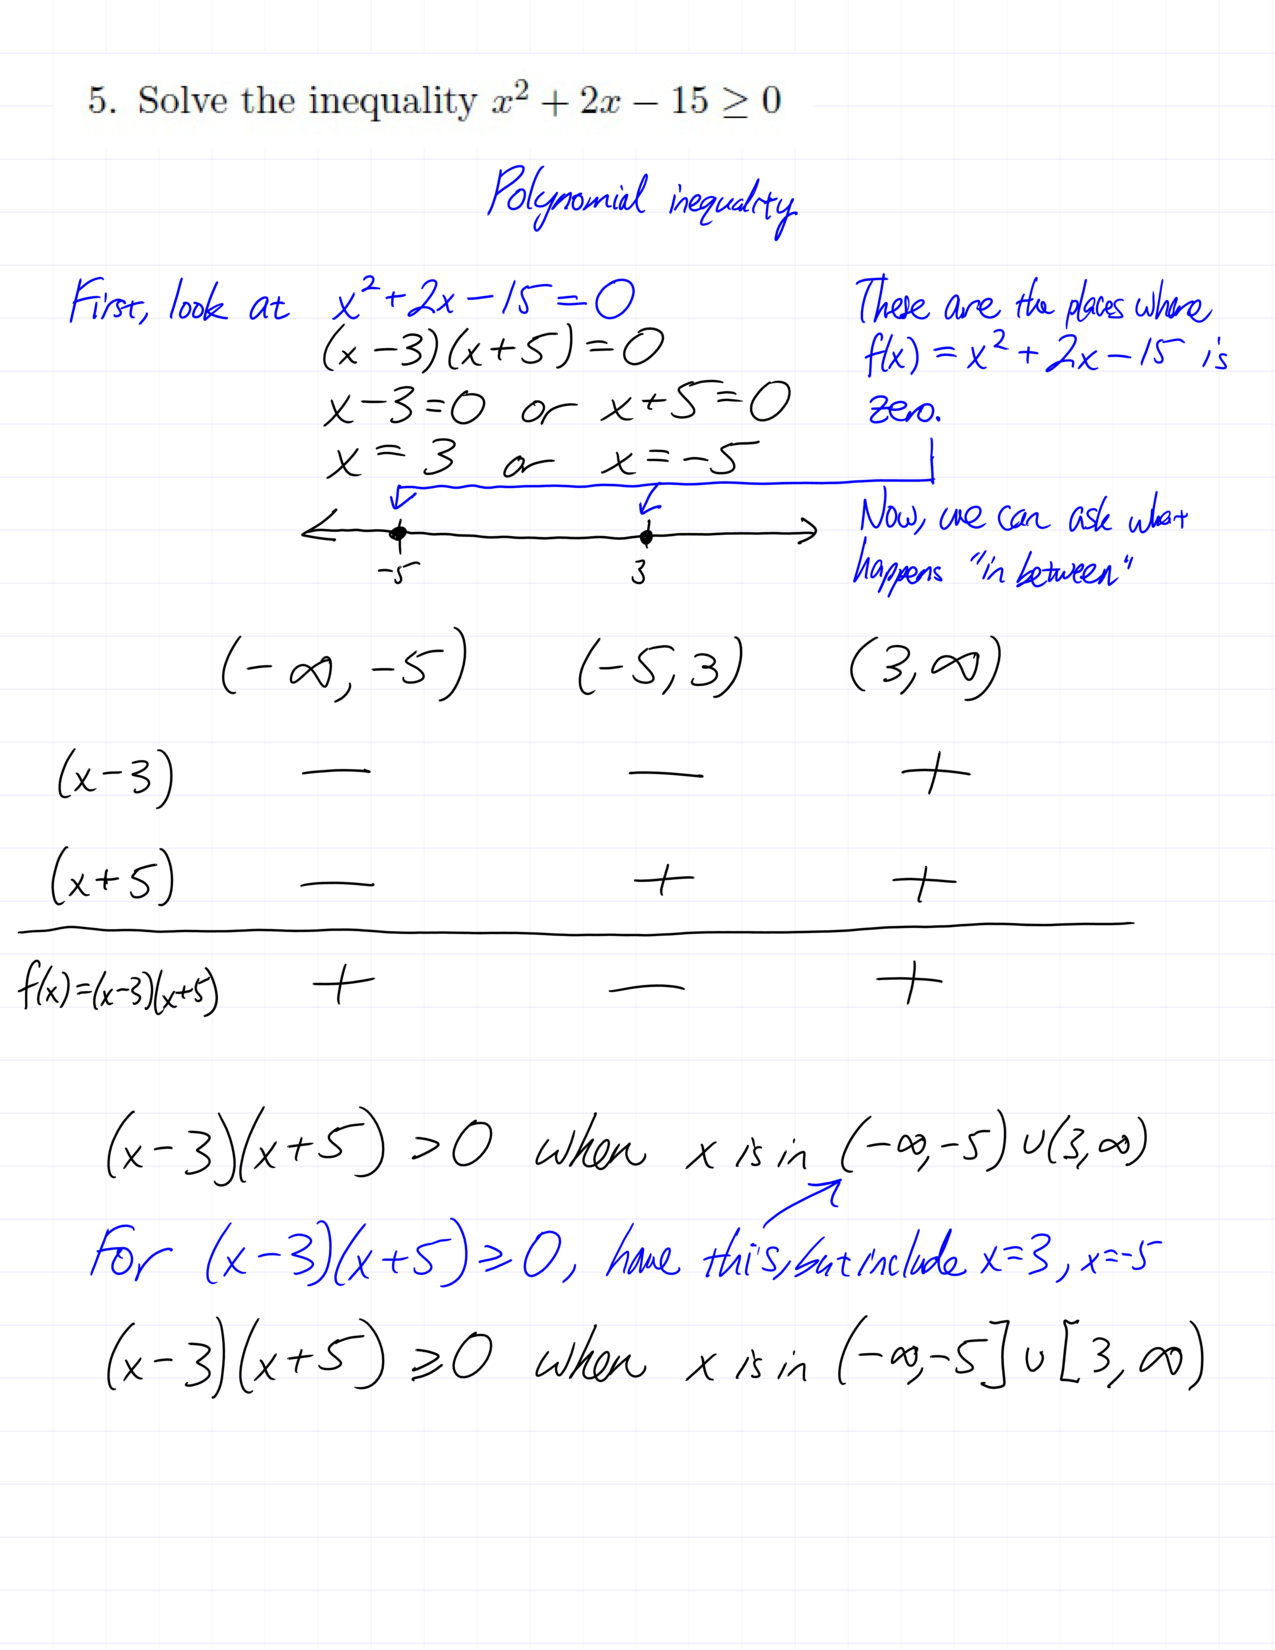 5. Solve the inequality x² + 2x − 15 ≥ 0
Polynomial inequality
First, look at x²+2x−15=0
(x−3)(x+5)=0
x−3=0 or x+5=0
x=3 or x=−5
These are the places where
f(x) = x²+2x−15 is
zero.
−5 3
Now, we can ask what
happens "in between"
(−∞,−5) (−5,3) (3,∞)
(x−3) − − +
(x+5) − + +
f(x)=(x−3)(x+5) + − +
(x−3)(x+5) >0 when x is in (−∞,−5)∪(3,∞)
For (x−3)(x+5)≥0, have this, but include x=3, x=−5
(x−3)(x+5) ≥0 when x is in (−∞,−5]∪[3,∞)